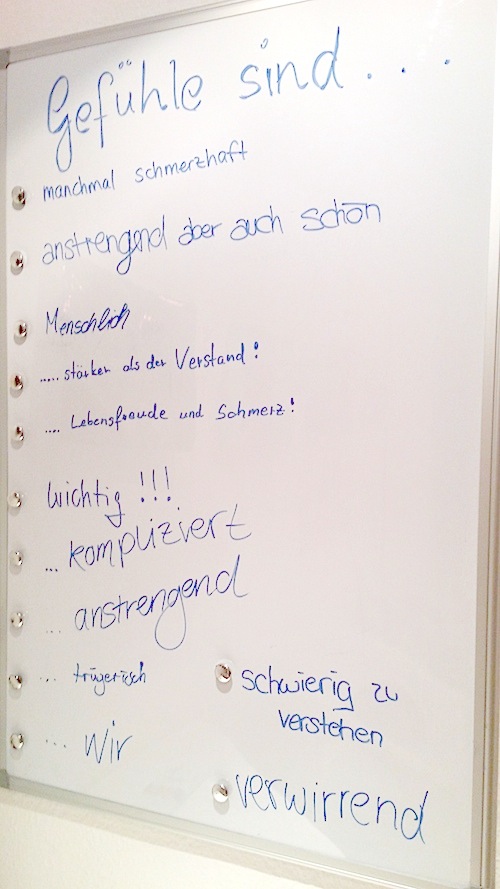 Gefühle sind . . .
manchmal schmerzhaft
anstrengend aber auch schön
Menschlich
..... stärker als der Verstand!
.... Lebensfreude und Schmerz!
Wichtig !!!
... kompliziert
... anstrengend
... trügerisch
... Wir
schwierig zu
verstehen
verwirrend